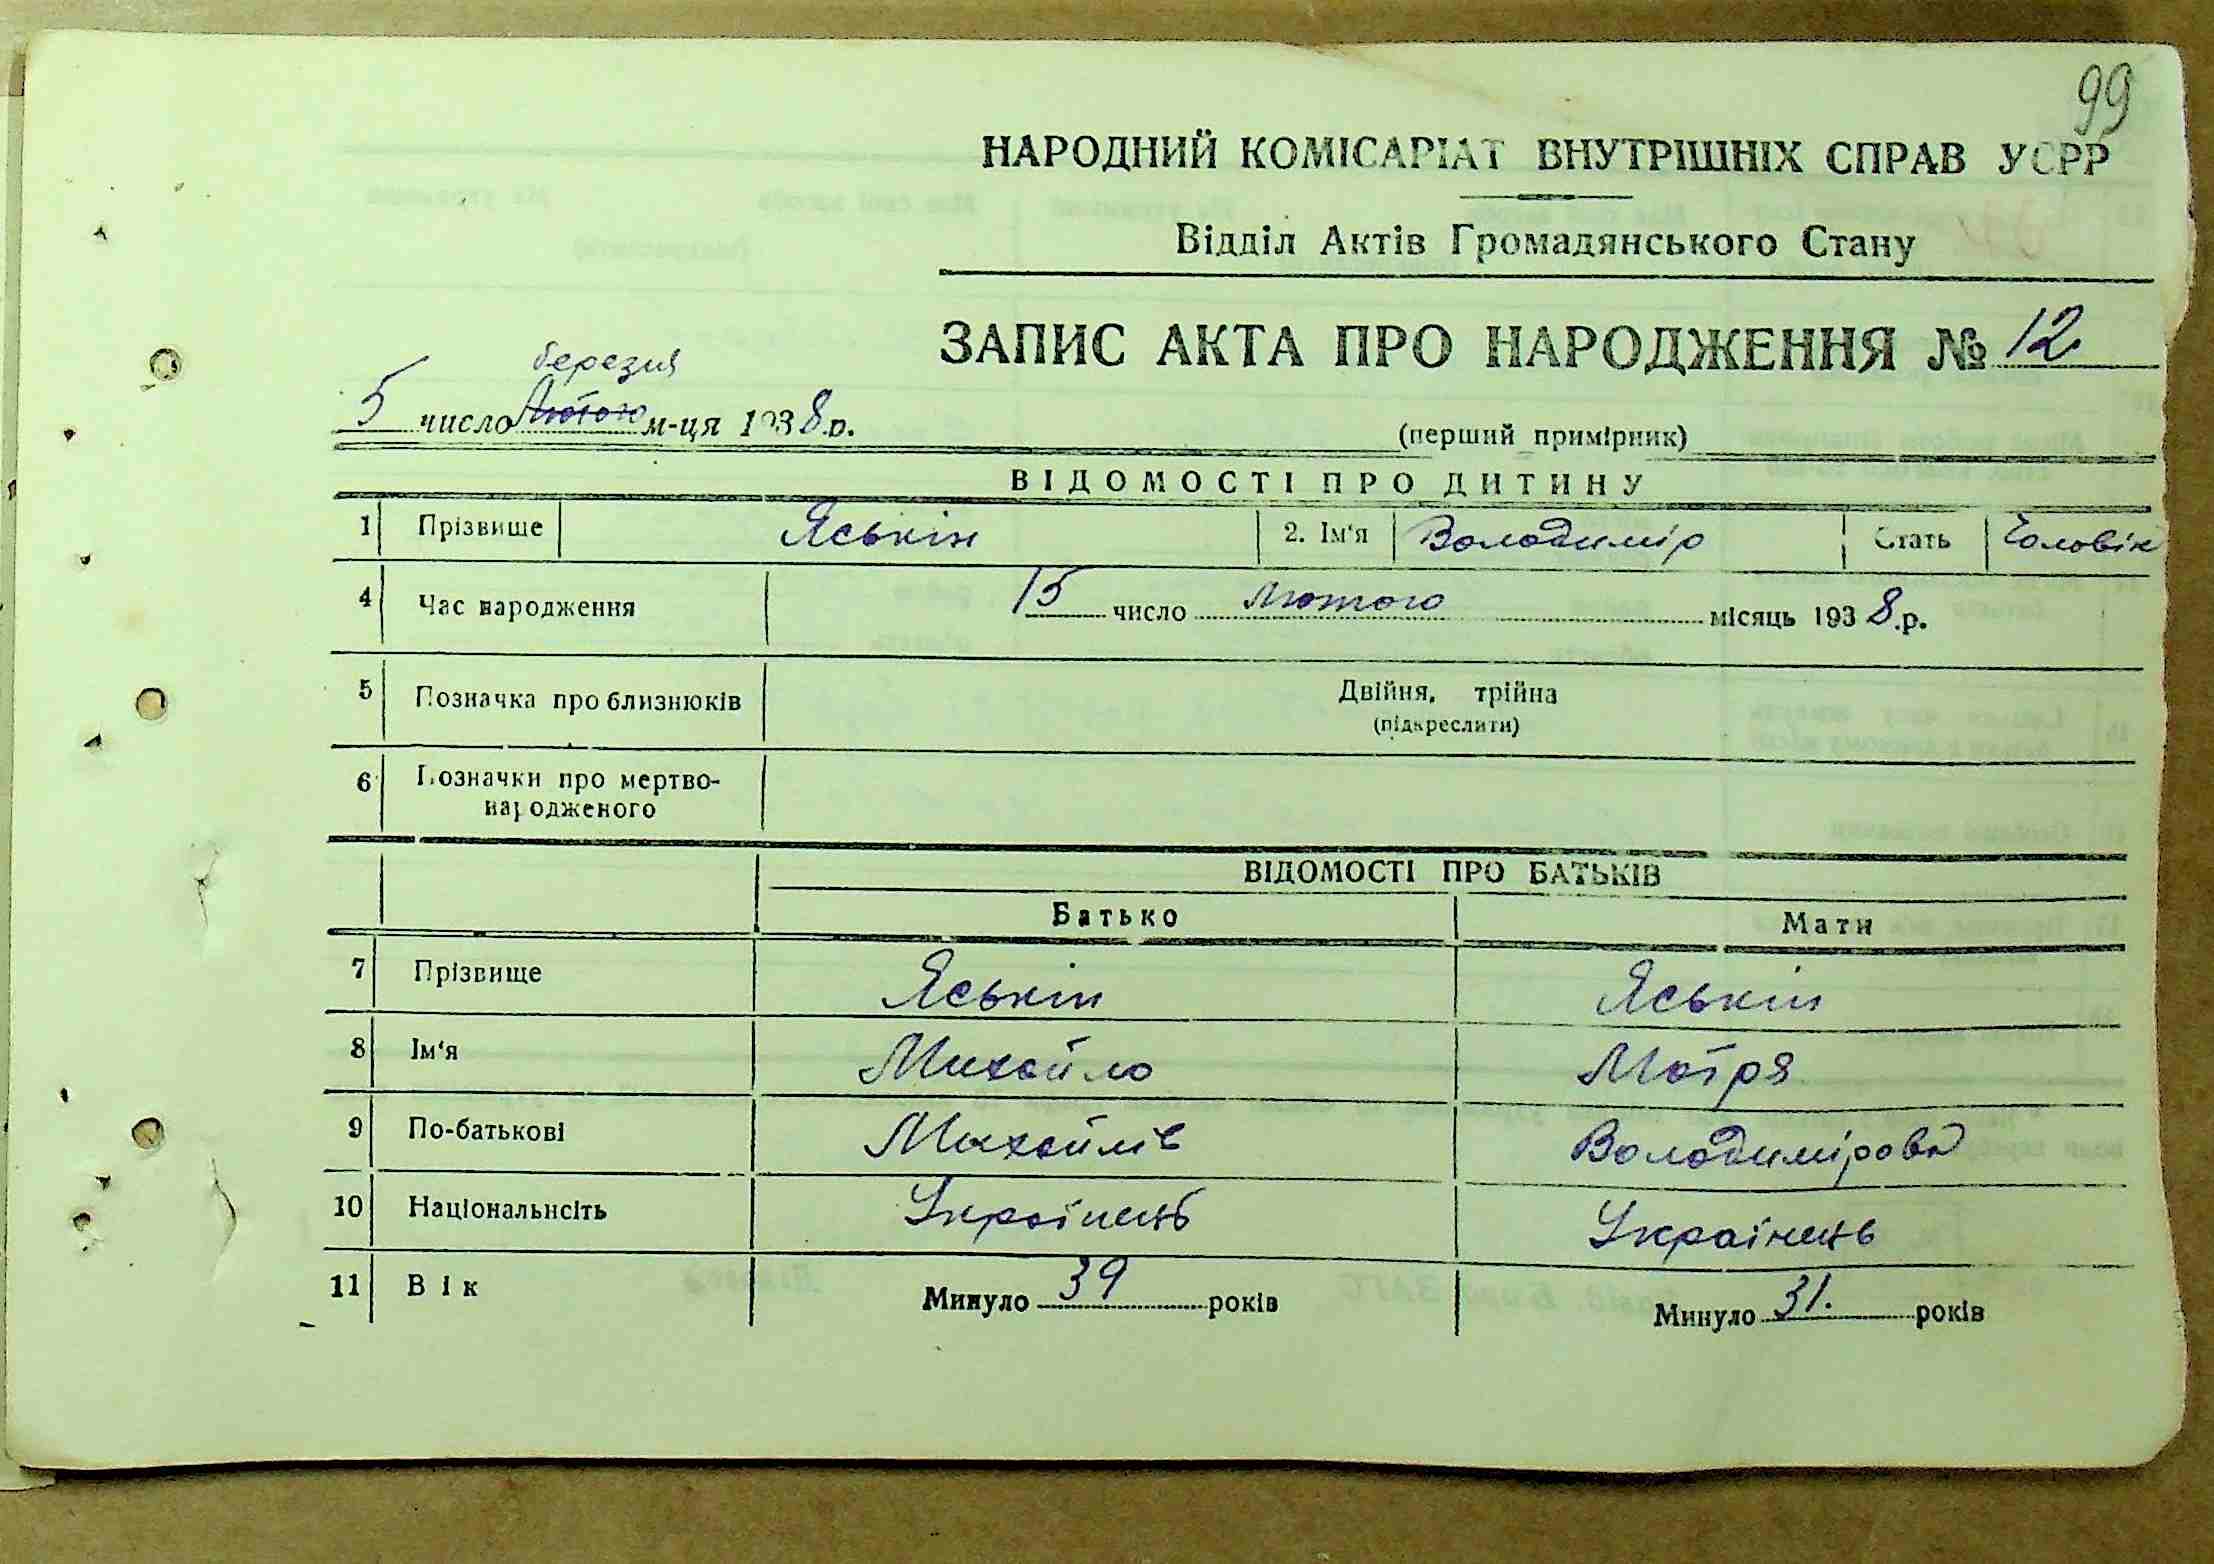 99
НАРОДНИЙ КОМІСАРІАТ ВНУТРІШНІХ СПРАВ УСРР
Відділ Актів Громадянського Стану
ЗАПИС АКТА ПРО НАРОДЖЕННЯ № 12
березня
5 число лютого м-ця 1938 р.
(перший примірник)
ВІДОМОСТІ ПРО ДИТИНУ
1 Прізвище Яськін 2. Ім'я Володимір Стать Чоловік
4 Час народження 15 число лютого місяць 1938 .р.
5 Позначка про близнюків Двійня, трійна
(підкреслити)
6 Позначки про мертво-
народженого
ВІДОМОСТІ ПРО БАТЬКІВ
Батько Мати
7 Прізвище Яськін Яськін
8 Ім'я Михайло Мотря
9 По-батькові Михайлів Володимірова
10 Національнсіть Українець Українець
11 Вік Минуло 39 років Минуло 31. років